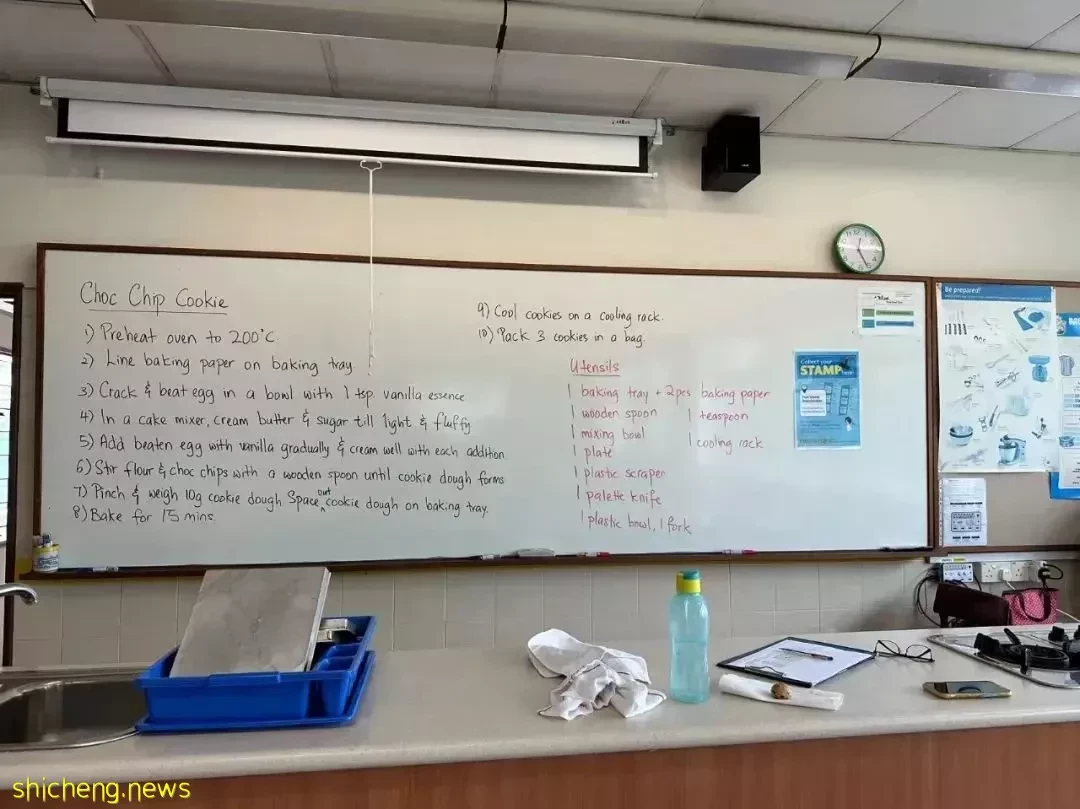 Choc Chip Cookie
1) Preheat oven to 200°C
2) Line baking paper on baking tray
3) Crack & beat egg in a bowl with 1 tsp. vanilla essence
4) In a cake mixer, cream butter & sugar till light & fluffy
5) Add beaten egg with vanilla gradually & cream well with each addition
6) Stir flour & choc chips with a wooden spoon until cookie dough forms
7) Pinch & weigh 10g cookie dough Space out cookie dough on baking tray.
8) Bake for 15 mins
9) Cool cookies on a cooling rack.
10) Pack 3 cookies in a bag.
Utensils
1 baking tray + 2pcs baking paper
1 wooden spoon
1 teaspoon
1 mixing bowl
1 cooling rack
1 plate
1 plastic scraper
1 palette knife
1 plastic bowl, 1 fork
Collect your
STAMP
here!
Be prepared!
shicheng.news